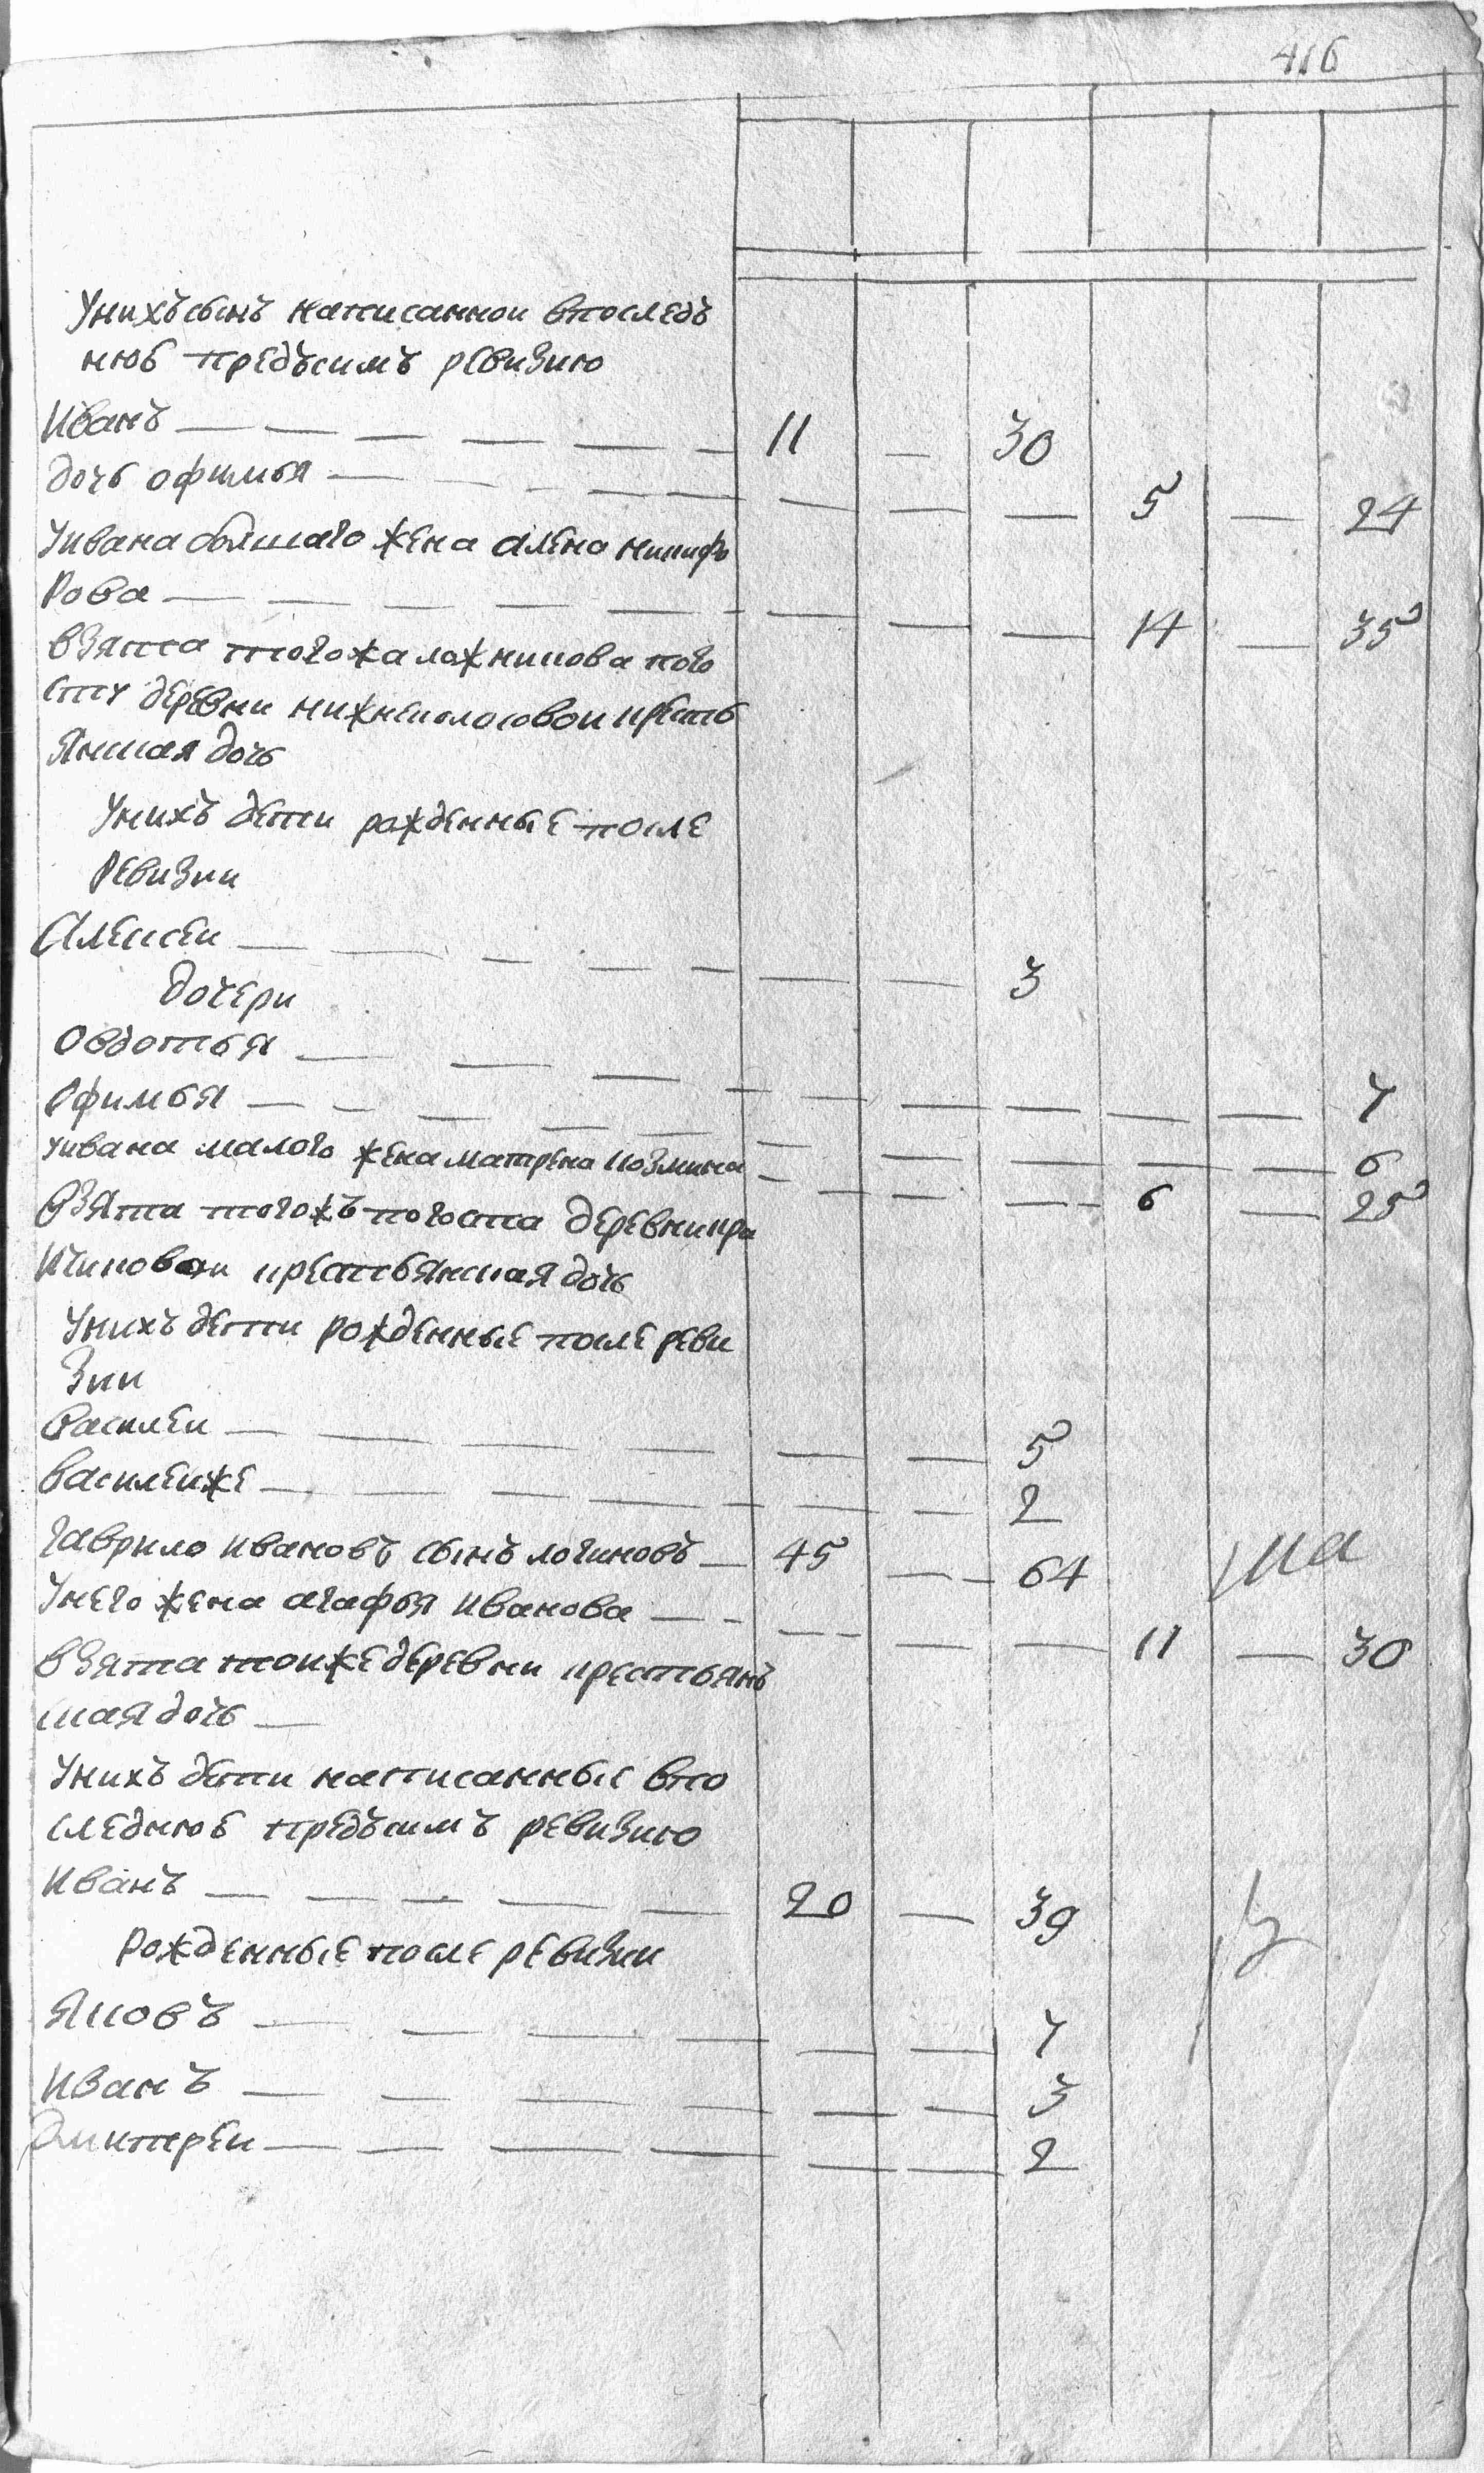 416
Унихъ сынъ написаннои впоследъ
нюю предъсимъ ревизию
Иванъ — 11 — 30
дочь офимья — 5 — 24
Уивана болшаго жена алена никифо
Рова — 14 — 35
взята того жа погo
сту деревни крестъ
янская дочь
Унихъ дети рожденные после
Ревизии
Алексеи — 3
дочери
Овдотья — 7
Офимья — 6
Уивана малого жена матрена козмина — 6 — 25
Взята тогожъ погоста деревни кра
крестьянская дочь
Унихъ дети рожденные после реви
Зии
Василеи — 5
Василеиже — 2
Гаврило ивановъ сынъ логиновъ — 45 — 64
Унего жена агафья иванова — 11 — 30
взята тоиже деревни крестьянъ
ская дочь —
Унихъ дети написанные впо
следнюю предъсимъ ревизию
Иванъ — 20 — 39
Рожденные после ревизии
Яковъ — 7
Иванъ — 3
Дмитреи — 2